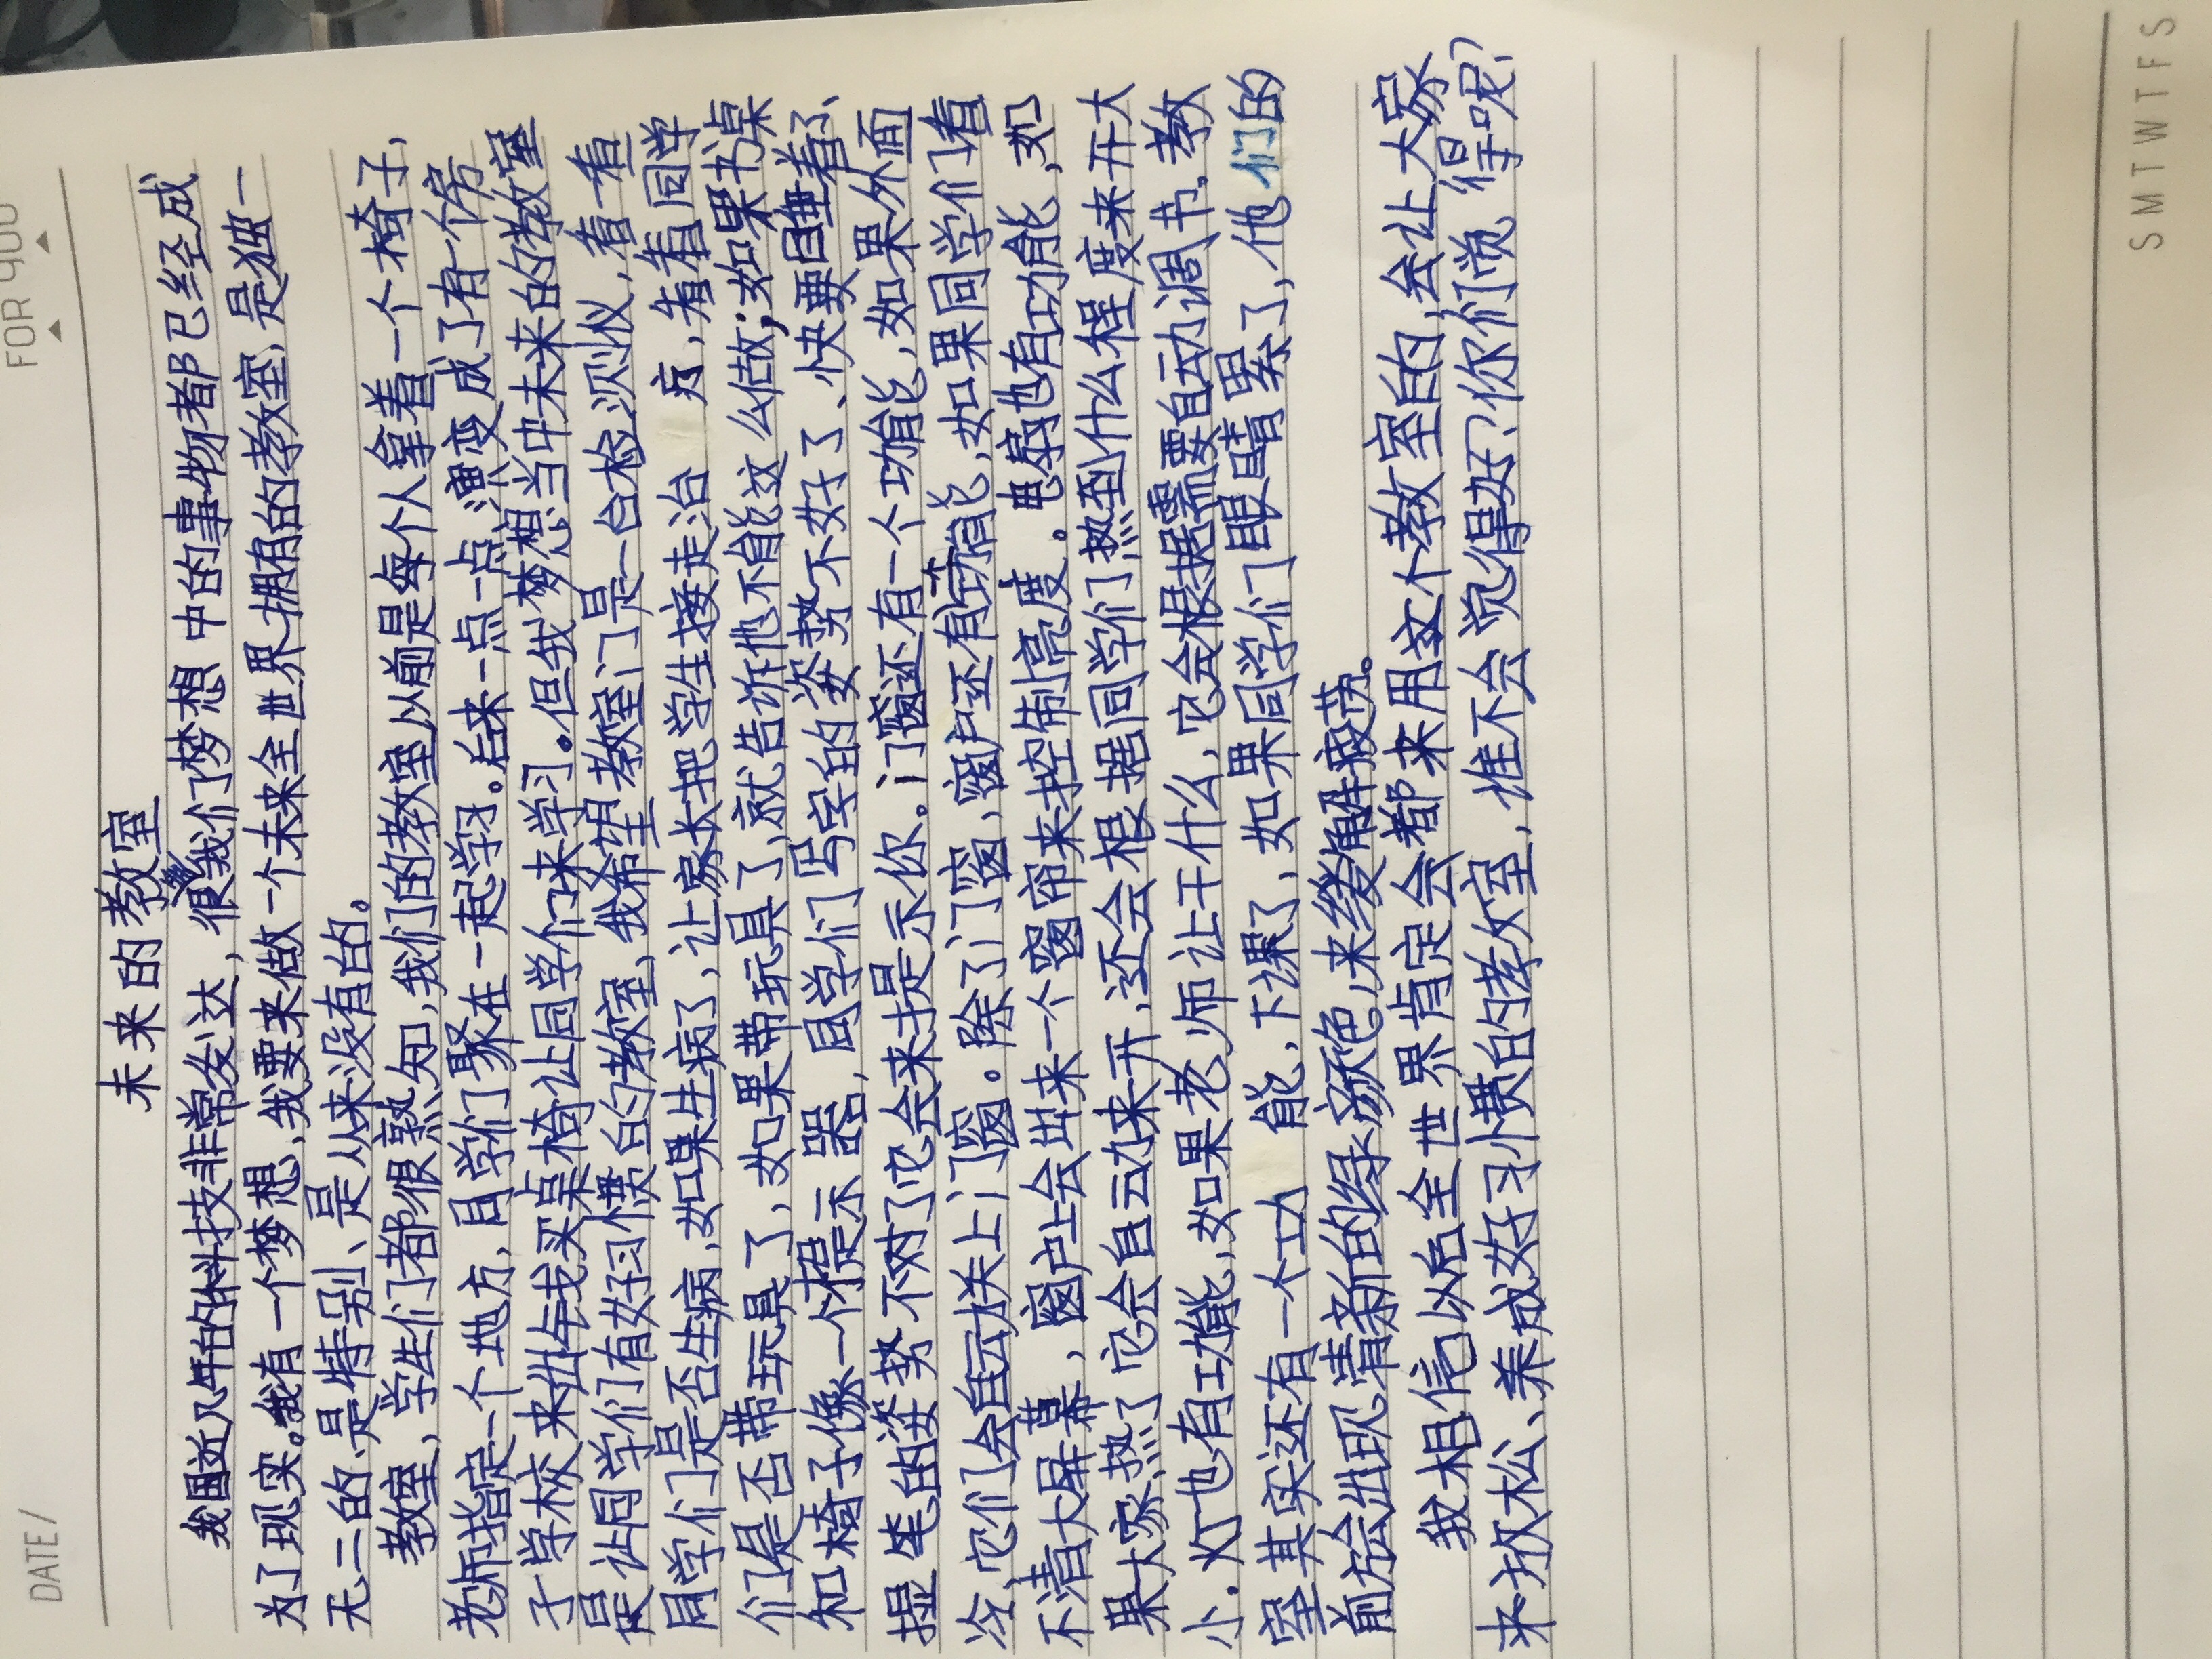 DATE/
FOR YOU
未来的教室
我国近几年的科技非常发达，很多我们梦想中的事物都已经成
为了现实。我有一个梦想，我要来做一个未来全世界拥有的教室，是独一
无二的、是特别、是从来没有的。
教室，学生们都很熟知，我们的教室以前是每个人拿着一个椅子，
老师指定一个地方，同学们聚在一起学习。后来一点一点演变成了有一个房
子学校来出钱买桌椅让同学们来学习。但我梦想当中未来的教室
是让同学们有好习惯的教室，我希望教室门是一台检测仪，看一看
同学们是否生病，如果生病了，让家长把学生接走治疗，看看同学
们是否带玩具了，如果带玩具了，就告诉他不能这么做；如果书桌
和椅子像一个提示器，同学们写字的姿势不好了、快要睡着了、
握笔的姿势不对了它会来提示你。门窗还有一个功能，如果外面
冷，它们会自动关上门窗。除了门窗，窗户还有功能，如果同学们看
不清大屏幕，窗户上会出来一个窗帘来控制亮度。电扇也有功能，如
果大家热了它会自动来开，还会根据同学们热到什么程度来开大
小。灯也有功能，如果老师让干什么，它会根据需要自动调节。教
室其实还有一个功能，下课了，如果同学们眼睛累了，他们的
前方会出现清新的绿颜色，来缓解疲劳。
我相信以后全世界肯定会都来用这个教室的，会让大家
来放松、养成好习惯的教室，谁不会觉得好？你们觉得呢？
S M T W T F S